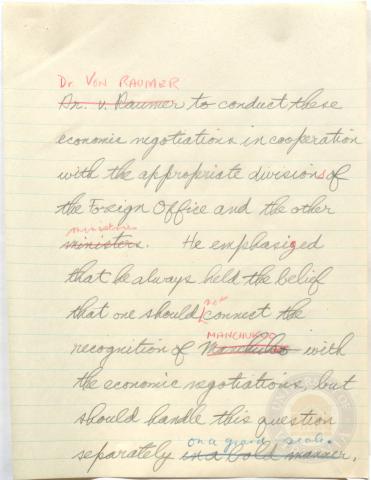 Dr VON RAUMER
Dr. v. Raumer to conduct these
economic negotiations in cooperation
with the appropriate divisions of
the Foreign Office and the other
ministries
ministers. He emphasized
that he always held the belief
not
that one should connect the
MANCHUKUO
recognition of Manchukuo with
the economic negotiations, but
should handle this question
on a grand scale.
separately in a bold manner.